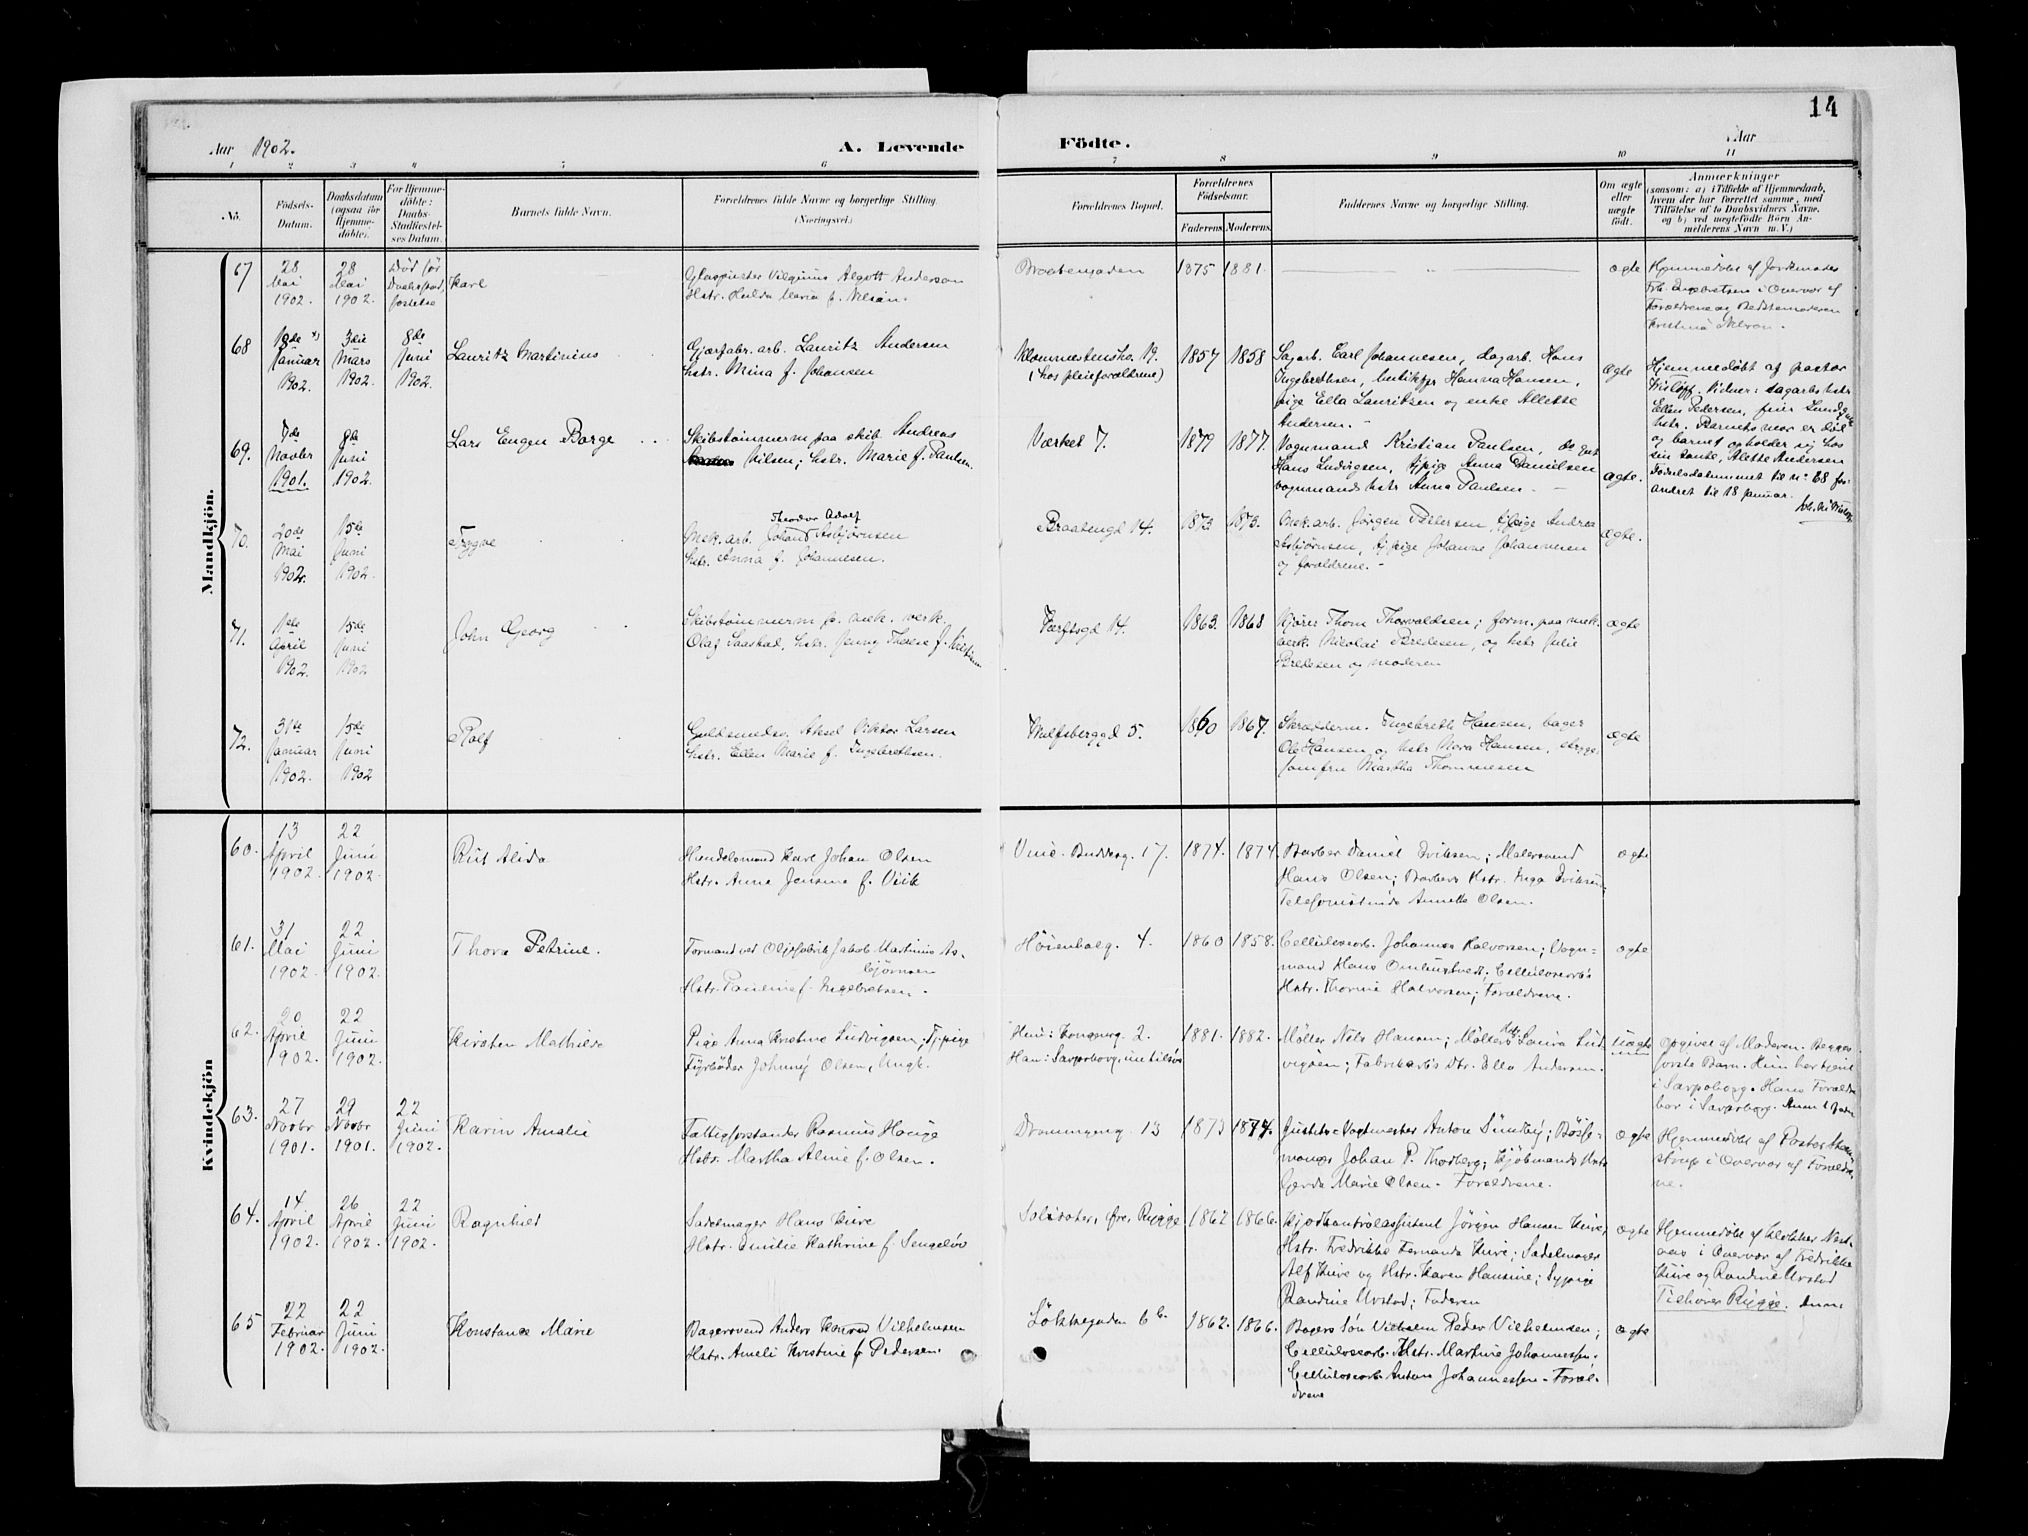 14
Aar 1902.
A. Levende Födte.
Aar
1 2 3 4 5 6 7 8 9 10 11
No.
Födsels-
Datum.
Daabsdatum
(ogsaa for
Hjemme-
döbte).
For Hjemme-
döbte:
Daabs-
Stadfæstel-
ses Datum.
Barnets fulde Navn.
Forældrenes fulde Navne og borgerlige Stilling.
(Næringsvei.)
Forældrenes Bopæl.
Forældrenes
Födselsaar.
Faderens. Moderens.
Faddernes Navne og borgerlige Stilling.
Om ægte
eller
uægte
födt.
Anmærkninger
(saasom: a) i Tilfælde af Hjemmedaab,
hvem der har forrettet samme, med
Tilföielse af to Daabsvidners Navne,
og b) ved uegtefödte Börn An-
melderens Navn m. V.)
Mandkjön.
67
28
Mai
1902.
28
Mai
1902.
Död för
Karl
Hstr. Hulda Maria f.
1875 1881.
ægte
68
18de
Januar
1902.
3die
Mars
1902.
8de
Juni
1902.
Lauritz Martinius
Gjærfabr. arb. Lauritz Andersen
hstr. Mina f. Johansen
(hos pleieforældrene)
1857 1858
Sagarb. Carl Johannesen, dagarb. Hans
Ingebrethsen, Hanna Hansen,
pige Ella Lauritsen og enke Allette
Andersen.
ægte
Hjemmedöbt af pastor
Vidner: sagarb. hstr
Ellen Pedersen,
hstr. Barnets mor er död
og barnet opholder sig hos
sin tante, Alette Andersen
Födselsdatummet til no 68 for-
andret til 18 januar.
69.
7de
Novbr
1901.
8de
Juni
1902.
Lars Eugen Borge
Skibstömmerm paa skib. Andreas
Nilsen; hstr. Marie f. Paulsen
Værket 7.
1879 1877.
Vognmand Kristian Paulsen,
Hans Ludvigsen, tj.pige Anna Danielsen
vognmands hstr Anna Paulsen.
ægte.
70.
20de
Mai
1902.
15de
Juni
1902.
Trygve
Theodor Adolf
Mek. arb. Johan Asbjörnsen
hstr. Anna f. Johannesen.
Braatengd 14.
1873 1873.
Mek. arb. Jörgen Petersen, tj.pige Andrea
Asbjörnsen, tj.pige Johanne Johannesen
og forældrene.
ægte.
71.
1ste
April
1902.
15de
Juni
1902
John Georg
Skibstömmerm p. mek. verk.
Olaf Saastad, hstr. Jenny Therese f.
Værftsgd 14.
1863. 1868
Thom Thorvaldsen; form. paa mek.
verk. Nicolai Bredesen, og hstr Julie
Bredesen og moderen
ægte
72.
31te
Januar
1902.
15de
Juni
1902
Rolf
Guldsmedsv. Aksel Viktor Larsen
hstr. Ellen Marie f. Ingebrethsen.
5.
1860 1867.
Skrædderm. Ingebreth Hansen, bager
Ole Hansen og hstr Nora Hansen, stryge-
jomfru Martha Thommesen
ægte
Kvindekjön
60.
13
April
1902.
22
Juni
1902.
Rut Alida
Handelsmand Karl Johan Olsen
Hstr. Anna Jensine f. Viik
17.
1874. 1874.
Barber Daniel Eriksen; Malersvend
Hans Olsen; Barbers Hstr. Inga Eriksen;
Telefonistinde Annette Olsen.
ægte
61.
31
Mai
1902.
22
Juni
1902.
Thora Petrine.
Formand ved Oljefabrik Jakob Martinius As-
björnsen
Hstr. Pauline f. Ingebretsen.
Höienhalg. 4.
1860 1858.
Cellulosearb. Johannes Halvorsen; Vogn-
mand Hans Omlundtvedt; Cellulosearb's
Hstr. Thorine Halvorsen; Forældrene.
ægte
62.
20
April
1902.
22
Juni
1902.
Kirsten Mathilde
Pige Anna Kristine Ludvigsen, Tj.pige
Fyrböder Johnny Olsen, Ungk.
Hun: Kongensg. 2.
Han: Sarpsborg,
1881. 1882.
Möller Nils Hansen; Möllers Hstr. Laura Lud-
vigsen; Fabrikarb's Dtr. Ella Andersen.
Uægte
opgivet af Moderen. Begges
förste Barn. Hun her
i Sarpsborg. Hans Foræld-
re bor i Sarpsborg.
63.
27
Novbr
1901.
29
Novbr
1901.
22
Juni
1902.
Karin Amalie
Fattigforstander Rasmus Hauge
Hstr. Martha Aline f. Olsen.
Dronningensg. 13
1873 1874.
Justits-Vagtmester Anton Sundby; Bösse-
mager Johan P. Thorberg; Kjöbmands Hstr
Gerda Marie Olsen. Forældrene.
ægte
Hjemmedöbt af Pastor
i Overvær af Foræld-
rene.
64.
14
April
1902.
26
April
1902.
22
Juni
1902.
Ragnhild
Sadelmager Hans Kure
Hstr. Emilie Kathrine f. Sengelöv
Rygge
1862 1866.
Kjödkontrolassistent Jörgen Hansen Kure;
Hstr. Fredrikke Fernanda Kure; Sadelmager
Alf Kure og Hstr. Karen Hansine; Sypige
Randine Urstad; Faderen
ægte
Hjemmedöbt af Klokker
i Overvær af Fredrikke
Kure og Randine Urstad
Tilhörer Rygge.
65
22
Februar
1902.
22
Juni
1902.
Konstance Marie
Bagersvend Anders Konrad Vilhelmsen
Hstr. Ameli Kristine f. Pedersen.
6 b.
1862. 1866.
Bagers Sön Vilhelm Peder Vilhelmsen;
Cellulosearb. Hstr. Martine Johannessen;
Cellulosearb. Anton Johannessen - Foræl-
drene
ægte